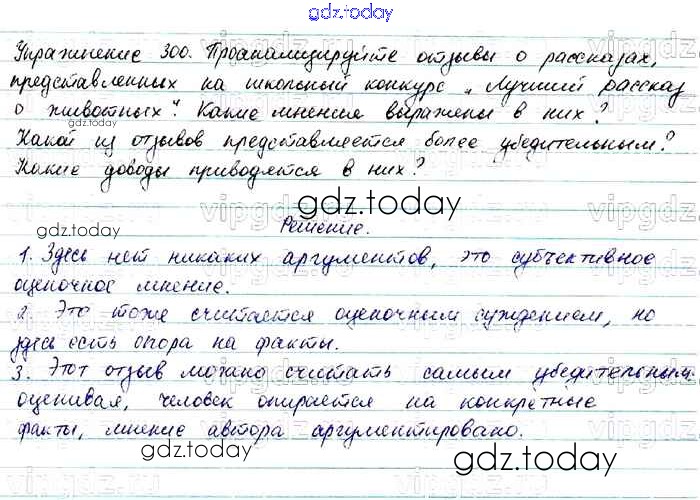 gdz.today
Упражнение 300. Проанализируйте отзывы о рассказах,
представленных на школьный конкурс „Лучший рассказ
о животных". Какие мнения выражены в них?
gdz.today
Какой из отзывов представляется более убедительным?
Какие доводы приводятся в них?
gdz.today
gdz.today
Решение.
1. Здесь нет никаких аргументов, это субъективное
оценочное мнение.
2. Это тоже считается оценочным суждением, но
здесь есть опора на факты.
3. Этот отзыв можно считать самым убедительным.
оценивая, человек опирается на конкретные
факты, мнение автора аргументировано.
gdz.today
gdz.today